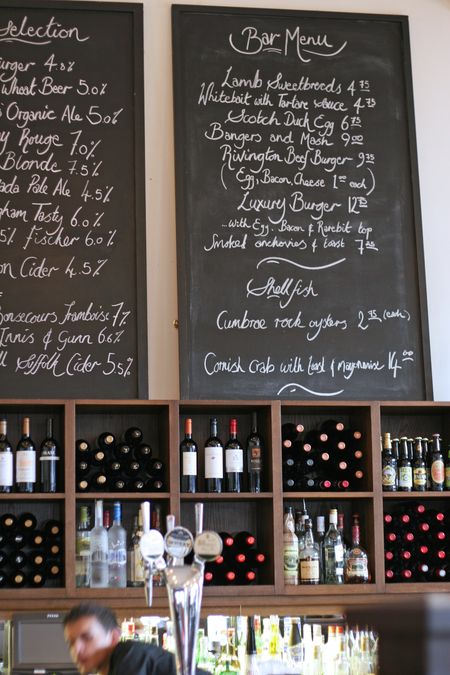 Selection
urger 4.8%
Wheat Beer 5.0%
's Organic Ale 5.0%
Rouge 7.0%
Blonde 7.5%
ada Pale Ale 4.5%
gham Tasty 6.0%
5% Fischer 6.0%
on Cider 4.5%
onsecours Framboise 7%
Innis & Gunn 6.6%
Suffolk Cider 5.5%
Bar Menu
Lamb Sweetbreads 4.75
Whitebait with Tartare Sauce 4.75
Scotch Duck Egg 6.75
Bangers and Mash 9.00
Rivington Beef Burger 9.35
(Egg, Bacon, Cheese 1.00 each)
Luxury Burger 12.75
...with Egg, Bacon & Rarebit top
Smoked anchovies & toast 7.25
Shellfish
Cumbrae rock oysters 2.75 (each)
Cornish Crab with toast & Mayonnaise 14.00